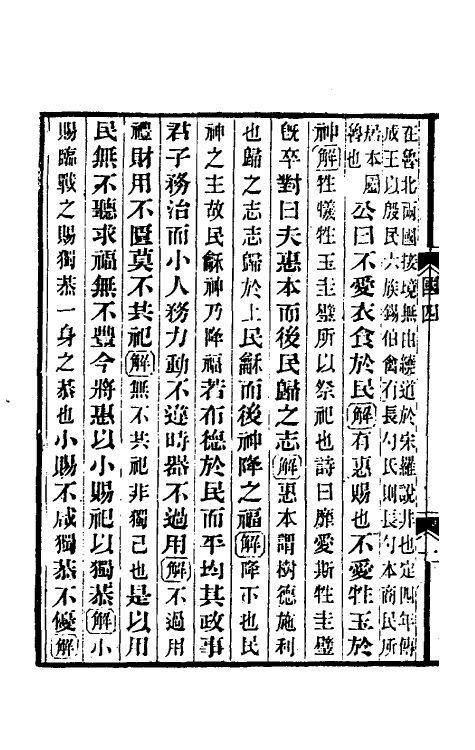 在魯北兩國接境無由繞道於宋羅說非也定四年傳
成王以殷民六族錫伯禽有長勺氏則長勺本商民所
居本屬
魯也
公曰不愛衣食於民解有惠賜也不愛牲玉於
神解牲犧牲玉圭璧所以祭祀也詩曰靡愛斯牲圭璧
旣卒對曰夫惠本而後民歸之志解惠本謂樹德施利
也歸之志志歸於上民龢而後神降之福解降下也民
神之主故民龢神乃降福若布德於民而平均其政事
君子務治而小人務力動不違時器不過用解不過用
禮財用不匱莫不共祀解無不共祀非獨己也是以用
民無不聽求福無不豐今將惠以小賜祀以獨恭解小
賜臨戰之賜獨恭一身之恭也小賜不咸獨恭不優解
國四